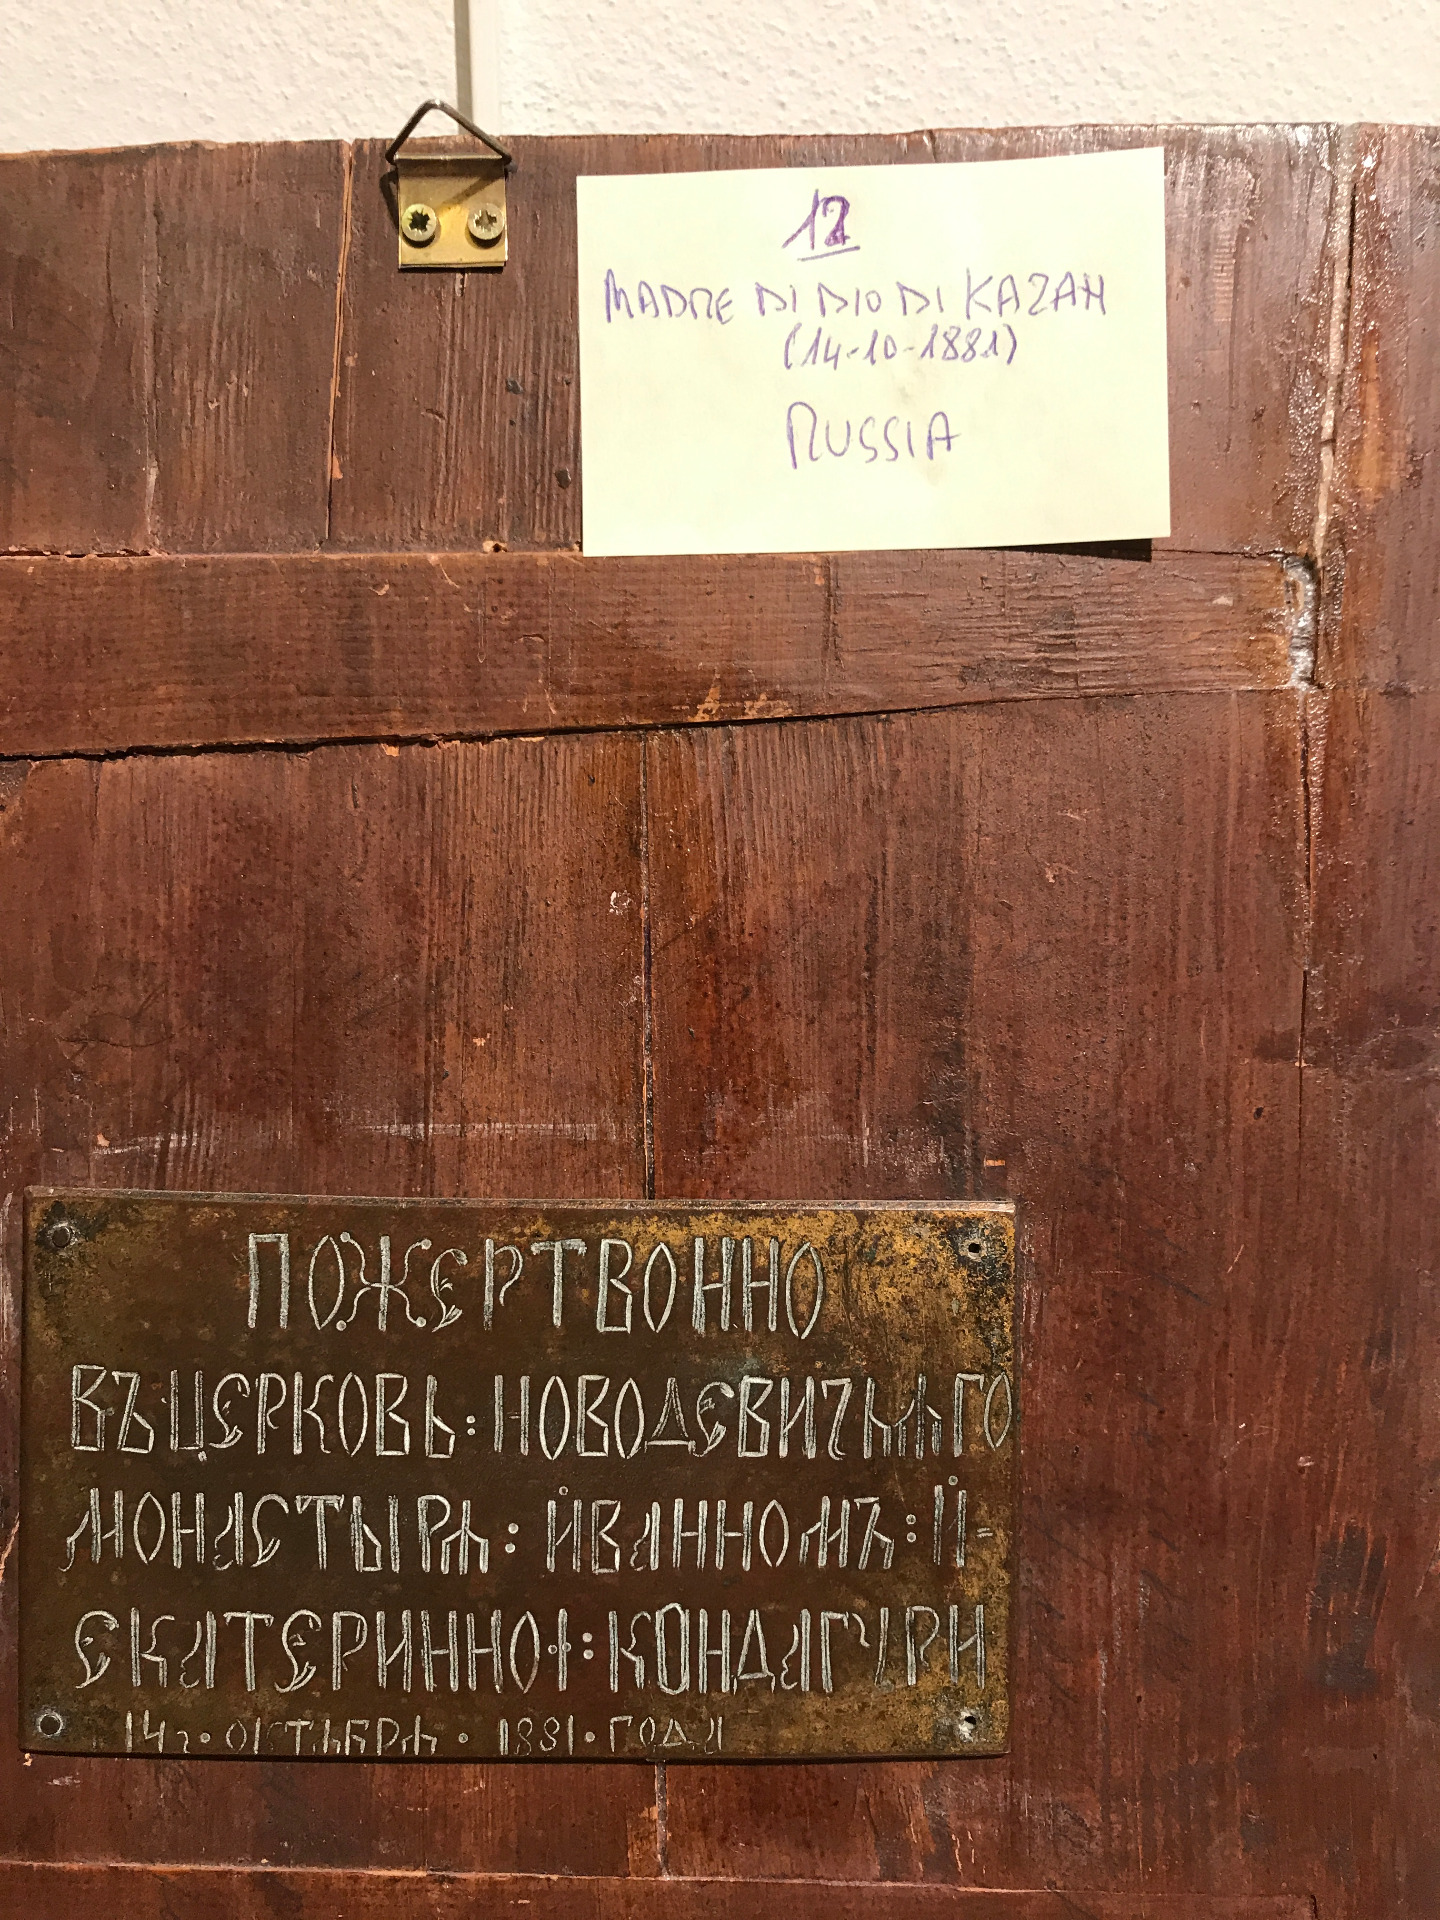 12
MADRE DI DIO DI KAZAN
(14-10-1881)
RUSSIA
ПОЖЕРТВОННО
ВЪ ЦЕРКОВЬ : НОВОДЕВИЧЬЯГО
МОНАСТЫРЯ : ИВАННОМЪ : И-
ЕКАТЕРИННОІ : КОНДАГУРИ
14г • ОКТЯБРЯ • 1881 • ГОДА